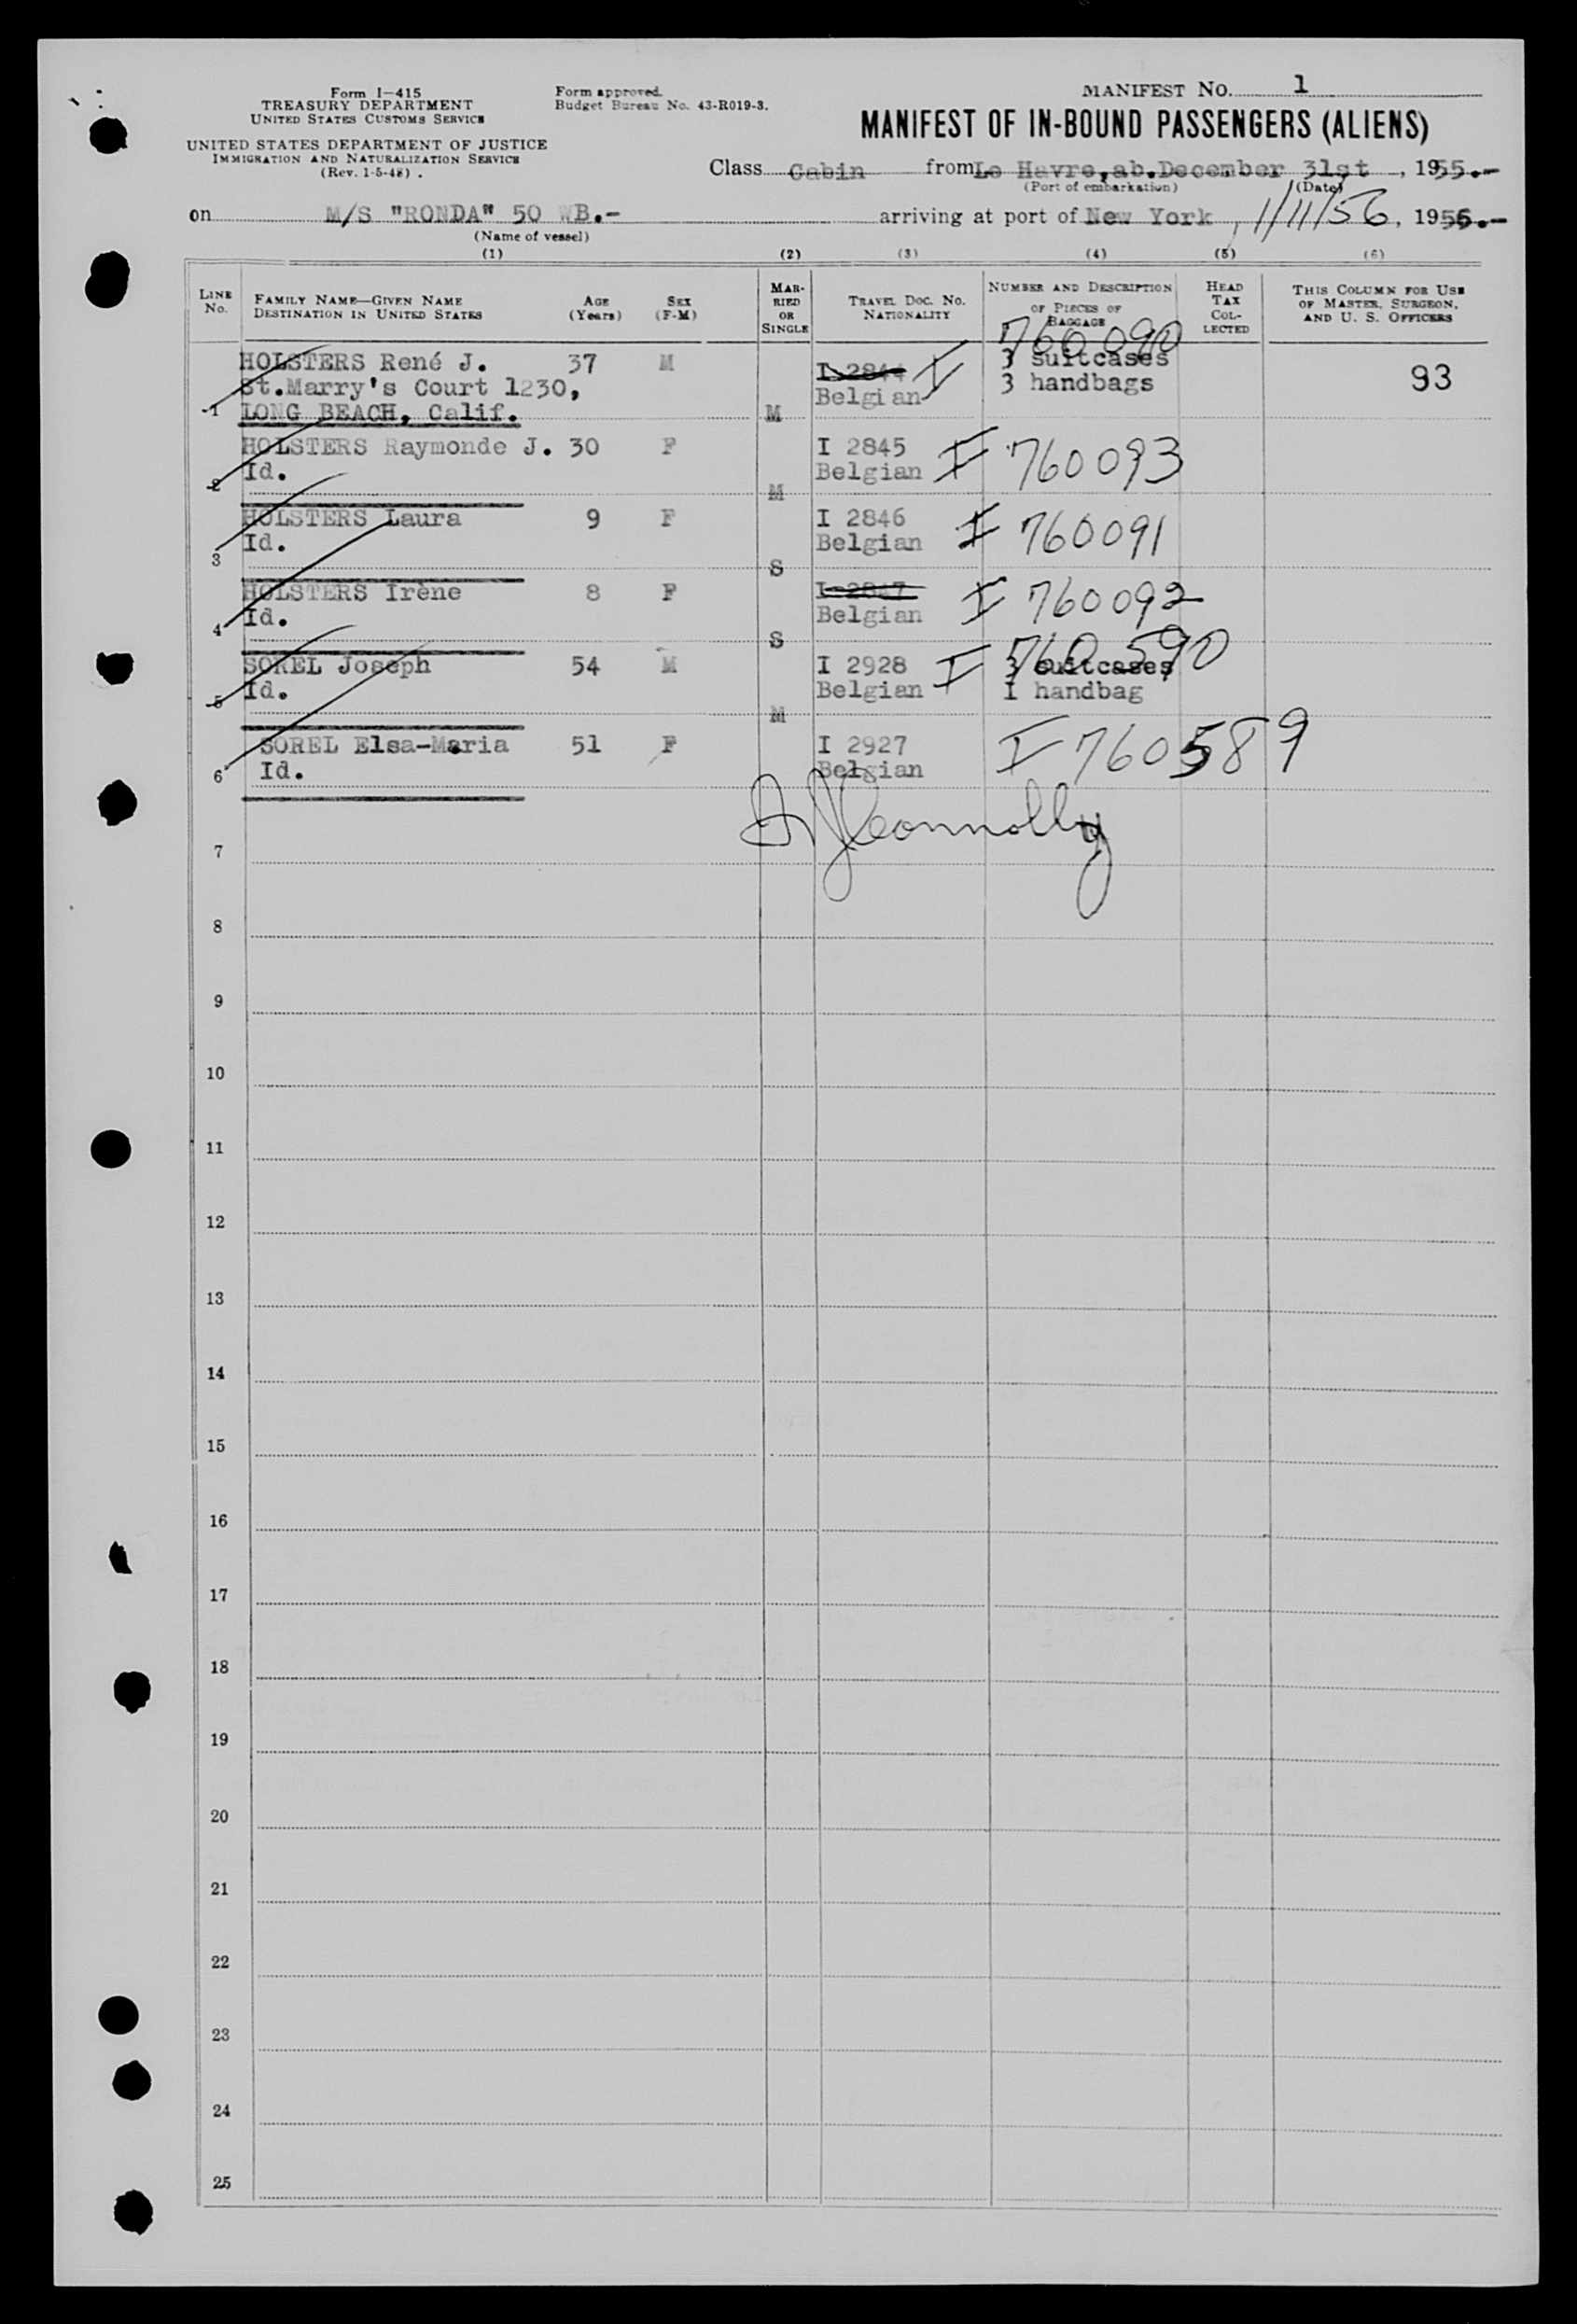 Form I-415
TREASURY DEPARTMENT
UNITED STATES CUSTOMS SERVICE
UNITED STATES DEPARTMENT OF JUSTICE
IMMIGRATION AND NATURALIZATION SERVICE
(Rev. 1-5-48)
Form approved.
Budget Bureau No. 43-R019-3.
MANIFEST NO. 1
MANIFEST OF IN-BOUND PASSENGERS (ALIENS)
Class Cabin from Le Havre, ab. December 31st, 1955.-
(Port of embarkation) (Date)
on M/S "RONDA" 50 WB.- arriving at port of New York, 1/11/56, 1956.-
(Name of vessel)
(1) (2) (3) (4) (5) (6)
LINE No.
FAMILY NAME—GIVEN NAME
DESTINATION IN UNITED STATES
AGE (Years)
SEX (F-M)
MARRIED OR SINGLE
TRAVEL DOC. NO.
NATIONALITY
NUMBER AND DESCRIPTION
OF PIECES OF
BAGGAGE
HEAD TAX COLLECTED
THIS COLUMN FOR USE
OF MASTER, SURGEON,
AND U. S. OFFICERS
760090
HOLSTERS René J. 37 M I 2844 I 3 suitcases
St.Marry's Court 1230, Belgian 3 handbags 93
1 LONG BEACH, Calif. M
HOLSTERS Raymonde J. 30 F I 2845 I 760093
2 Id. M Belgian
HOLSTERS Laura 9 F I 2846 I 760091
3 Id. S Belgian
HOLSTERS Irène 8 F I 2847 I 760092
4 Id. S Belgian
760590
SOREL Joseph 54 M I 2928 I 3 suitcases
5 Id. M Belgian I handbag
SOREL Elsa-Maria 51 F I 2927 I 760589
6 Id. Belgian
Connolly
7
8
9
10
11
12
13
14
15
16
17
18
19
20
21
22
23
24
25